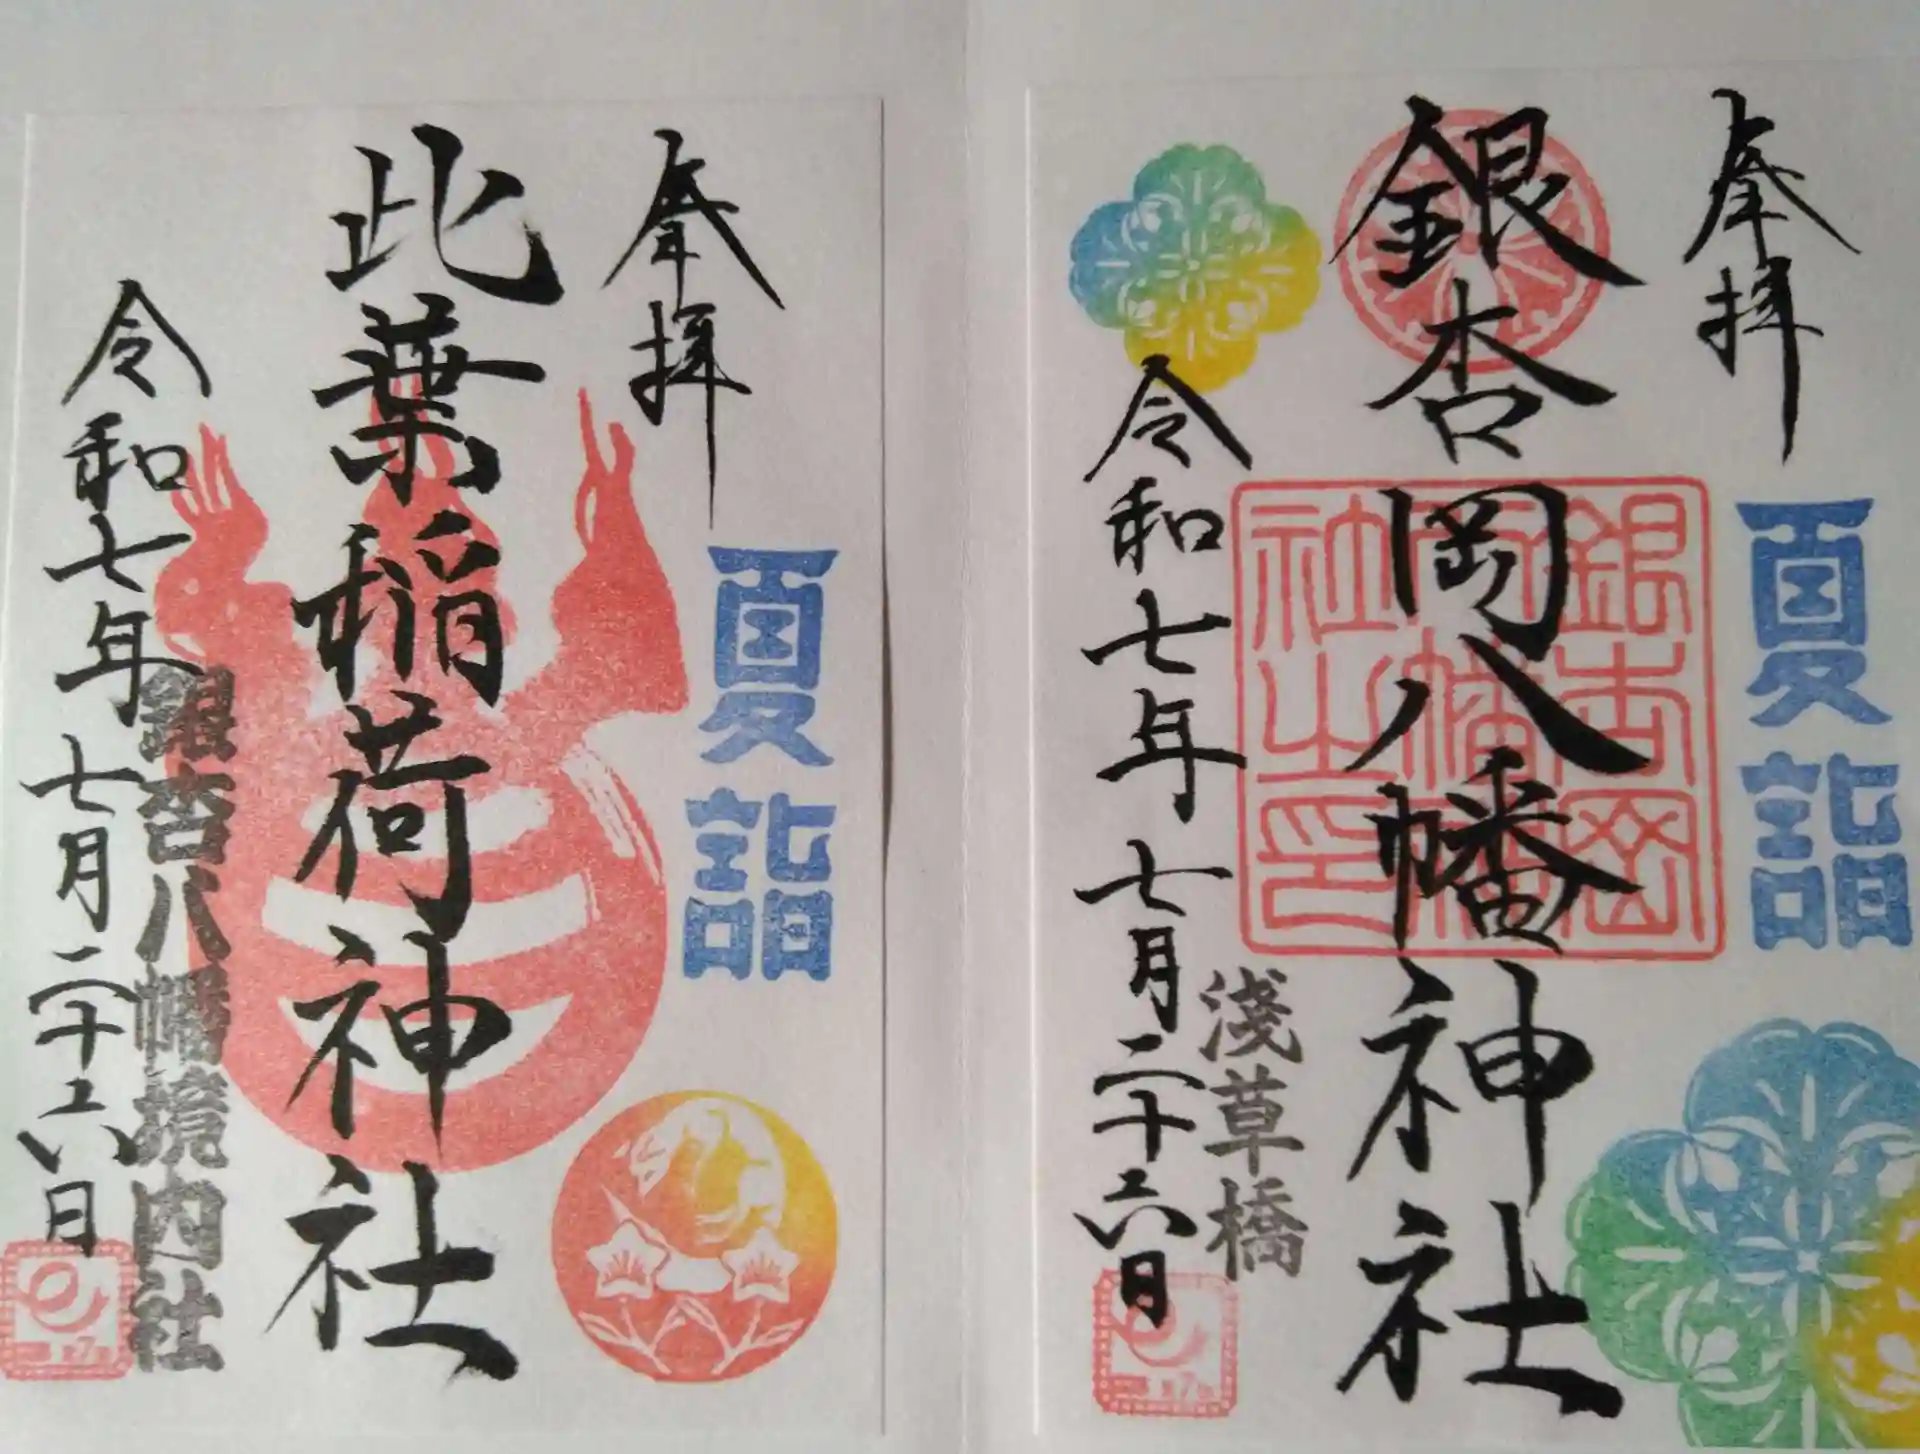 奉拝
夏詣
銀杏岡八幡神社
銀杏岡八幡神社之印
浅草橋
令和七年七月二十六日
奉拝
夏詣
此葉稲荷神社
銀杏八幡境内社
令和七年七月二十六日